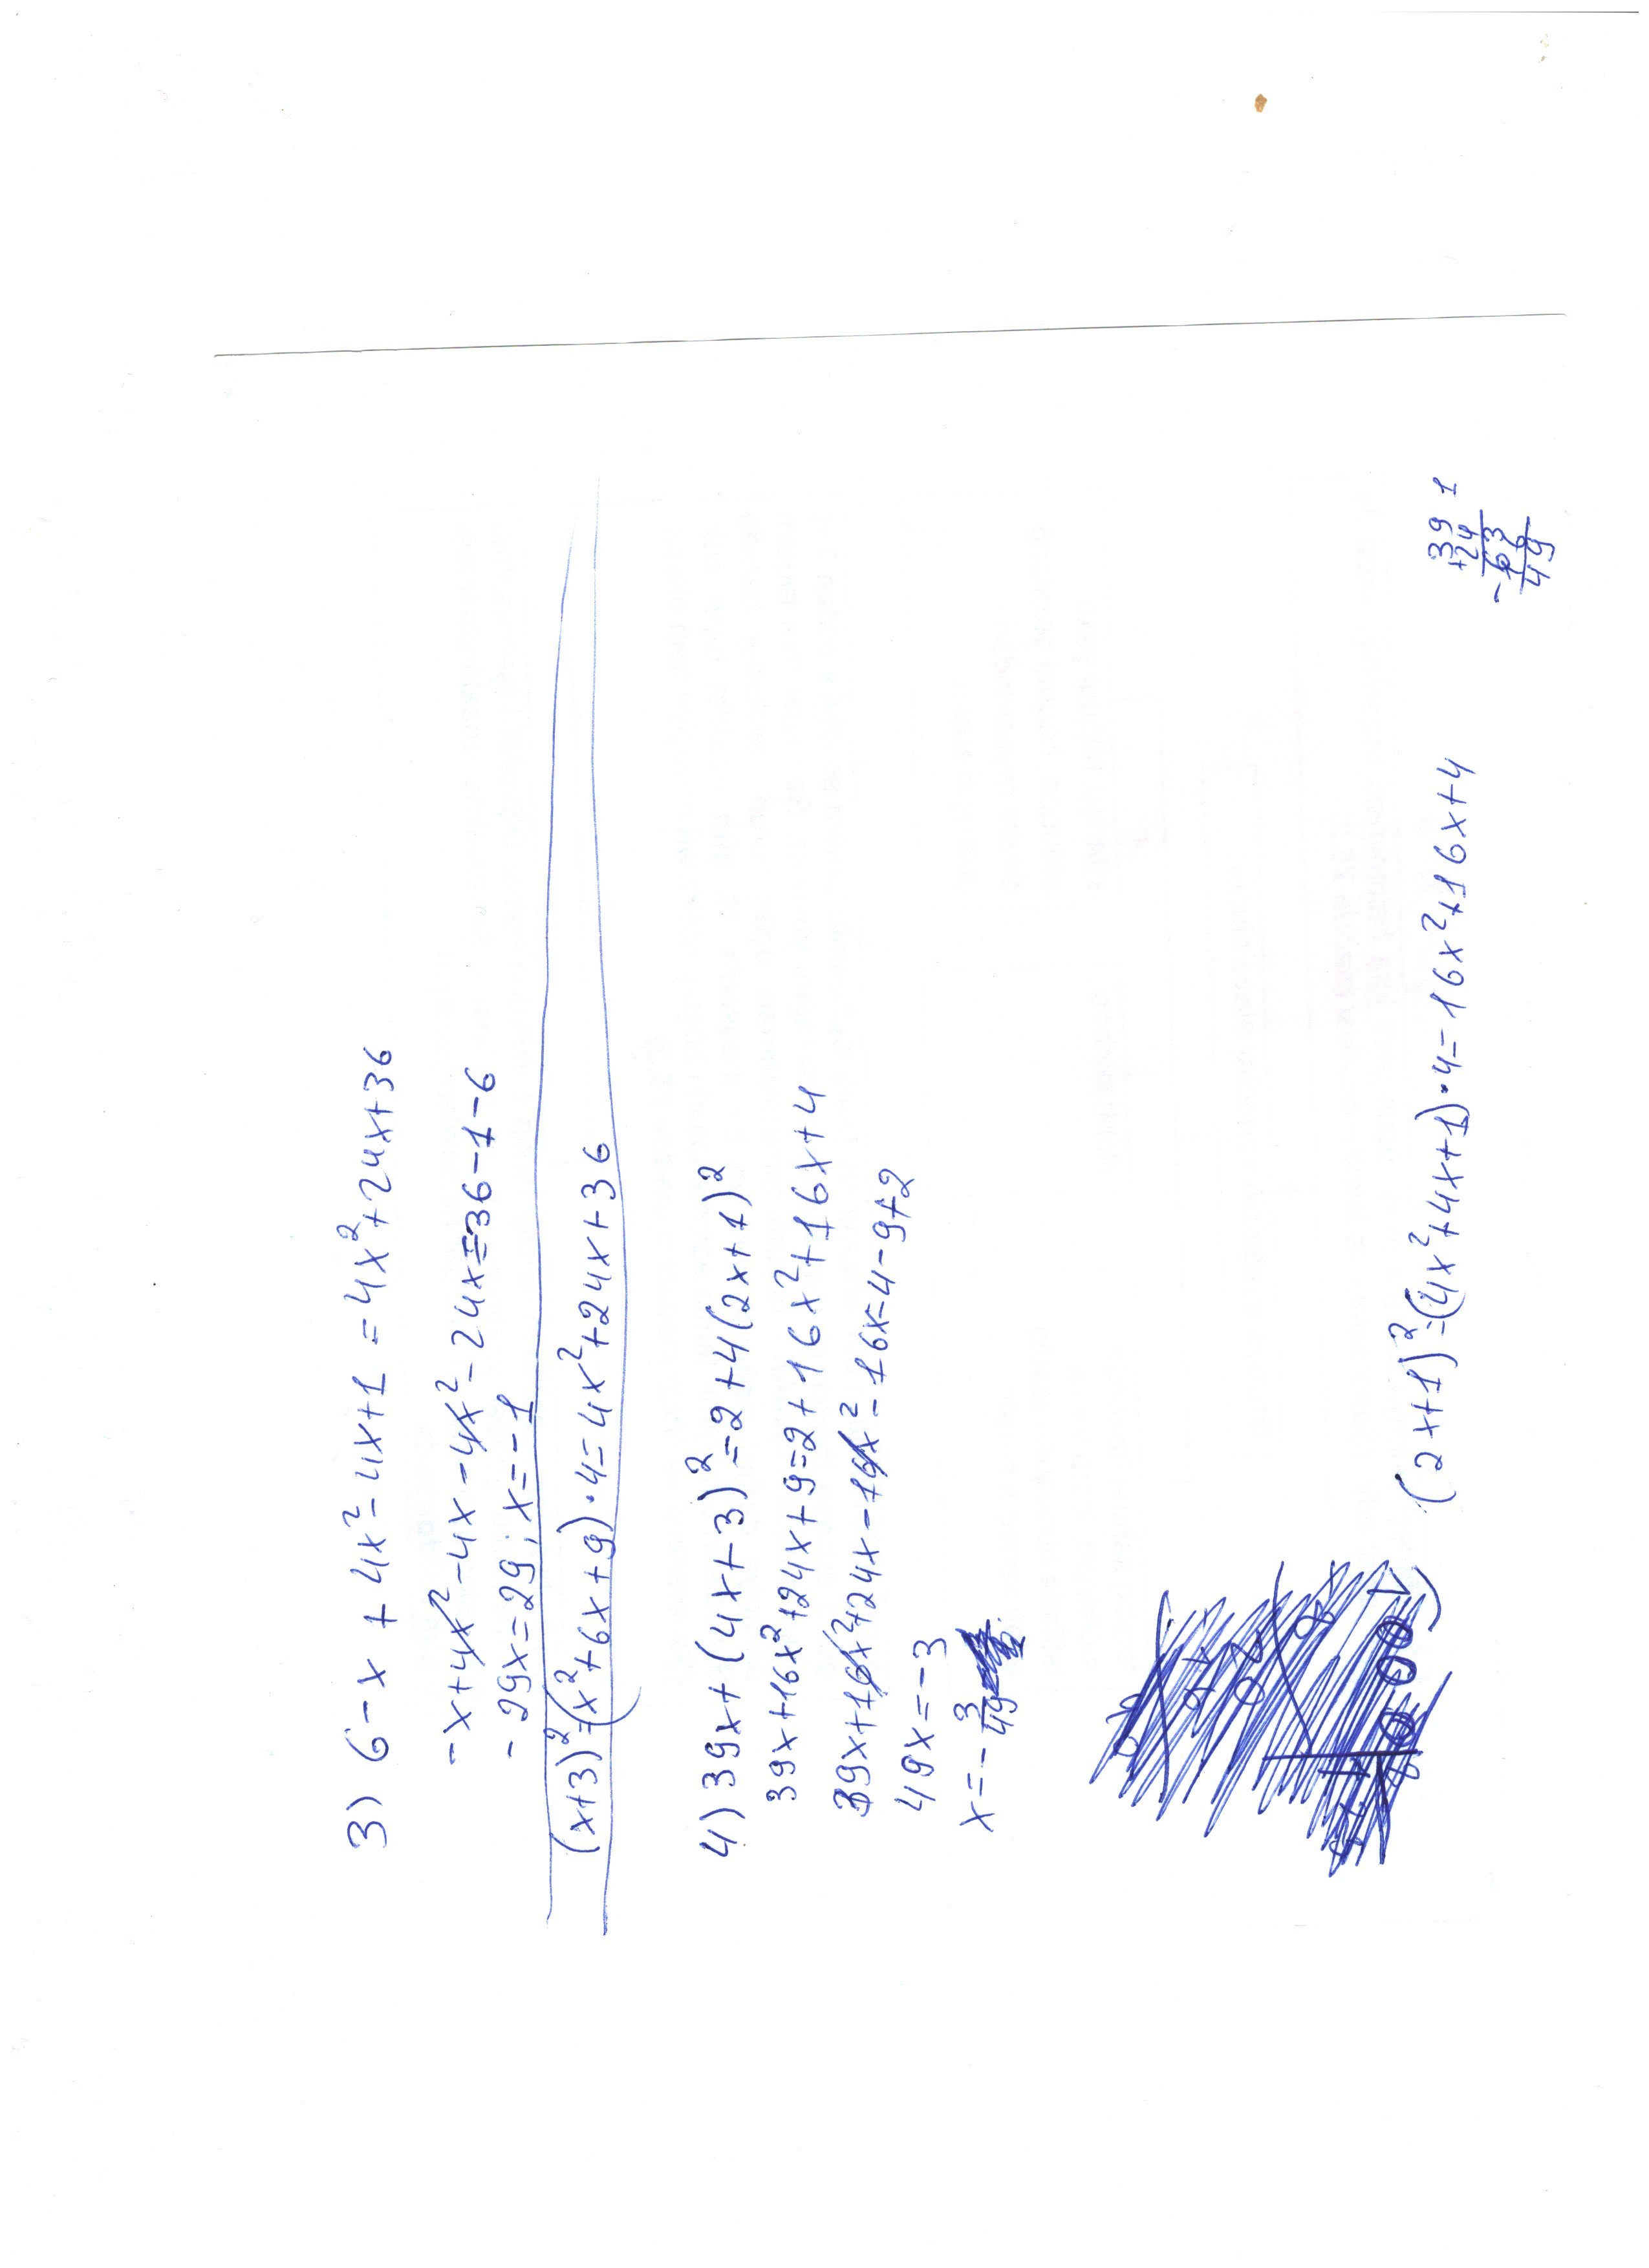 3) 6-x+4x²-4x+1=4x²+24x+36
-x+4x²-4x-4x²-24x=36-1-6
-29x=29; x=-1
(x+3)²=(x²+6x+9)·4=4x²+24x+36
4) 39x+(4x+3)²=2+4(2x+1)²
39x+16x²+24x+9=2+16x²+16x+4
39x+16x²+24x-16x²-16x=4-9+2
49x=-3
x=-3/49
(2x+1)²=(4x²+4x+1)·4=16x²+16x+4
39 1
+24
-63
16
49